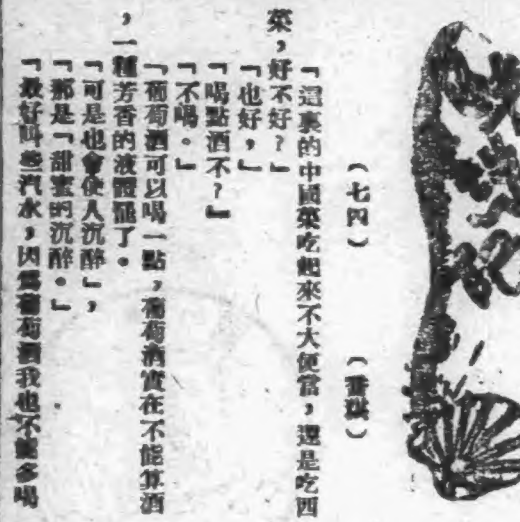 (七四)
「這裏的中國菜吃起來不大便當,還是吃西
菜,好不好?」
「也好,」
「喝點酒不?」
「不喝。」
「葡萄酒可以喝一點,葡萄酒實在不能算酒
,一種芳香的液體罷了。
「可是也會使人沉醉」,
「那是「甜蜜的沉醉。」
「最好叫些汽水,因爲葡萄酒我也不能多喝